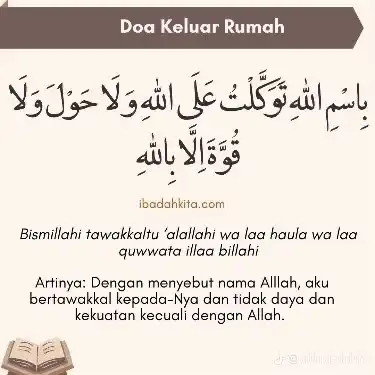 Doa Keluar Rumah
بِاسْمِ اللهِ تَوَكَّلْتُ عَلَى اللهِ وَلَا حَوْلَ وَلَا
قُوَّةَ اِلَّا بِاللهِ
ibadahkita.com
Bismillahi tawakkaltu ‘alallahi wa laa haula wa laa
quwwata illaa billahi
Artinya: Dengan menyebut nama Alllah, aku
bertawakkal kepada-Nya dan tidak daya dan
kekuatan kecuali dengan Allah.